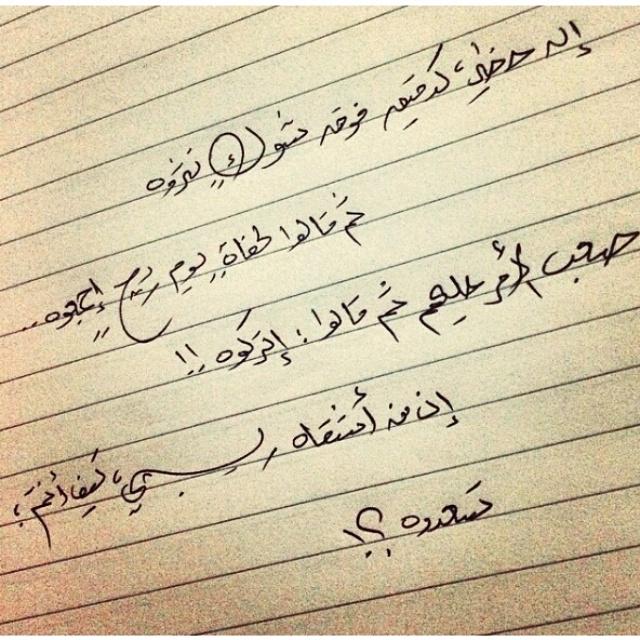 إن حظي، كدقيق فوق شوكٍ نثروه
ثم قالوا لحفاةٍ يوم ريحٍ إجمعوه..
صعب الأمر عليهم ثم قالوا : إتركوه !!
إن من أشقاه ربـي، كيف أنتم ؛
تسعدوه ؟!